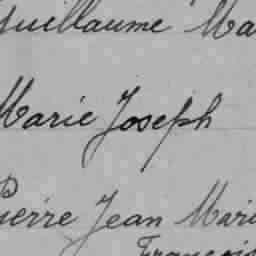 Guillaume Ma
Marie Joseph
Pierre Jean Mari
François